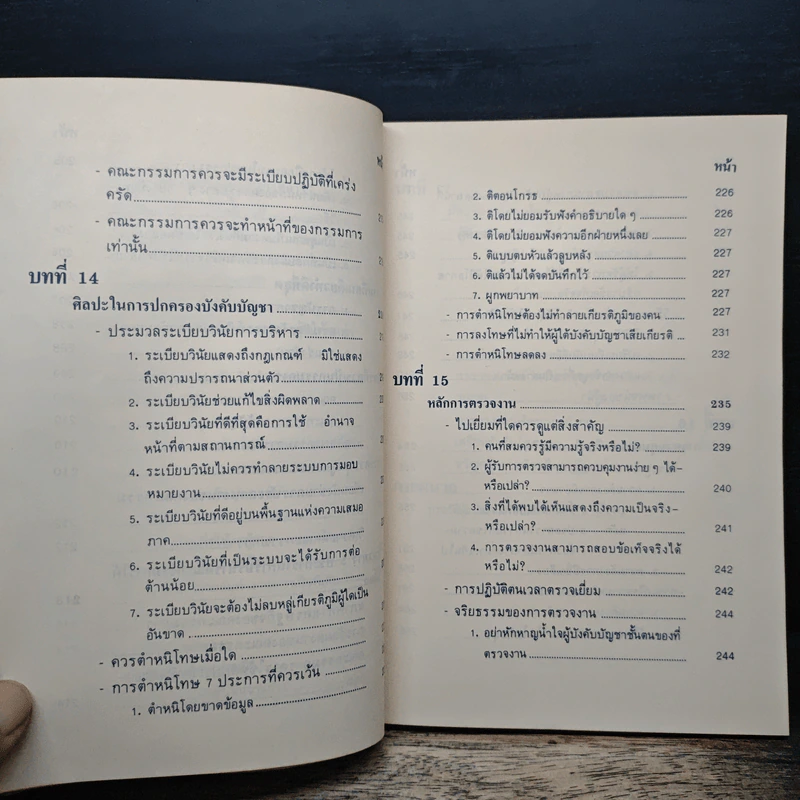 - คณะกรรมการควรจะมีระเบียบปฏิบัติที่เคร่ง
ครัด
- คณะกรรมการควรจะทำหน้าที่ของกรรมการ
เท่านั้น
บทที่ 14
ศิลปะในการปกครองบังคับบัญชา
- ประมวลระเบียบวินัยการบริหาร
1. ระเบียบวินัยแสดงถึงกฎเกณฑ์ มิใช่แสดง
ถึงความปรารถนาส่วนตัว
2. ระเบียบวินัยช่วยแก้ไขสิ่งผิดพลาด
3. ระเบียบวินัยที่ดีที่สุดคือการใช้ อำนาจ
หน้าที่ตามสถานการณ์
4. ระเบียบวินัยไม่ควรทำลายระบบการมอบ
หมายงาน
5. ระเบียบวินัยที่ดีอยู่บนพื้นฐานแห่งความเสมอ
ภาค
6. ระเบียบวินัยที่เป็นระบบจะได้รับการต่อ
ต้านน้อย
7. ระเบียบวินัยจะต้องไม่ลบหลู่เกียรติภูมิผู้ใดเป็น
อันขาด
- ควรตำหนิโทษเมื่อใด
- การตำหนิโทษ 7 ประการที่ควรเว้น
1. ตำหนิโดยขาดข้อมูล
หน้า
2. ติตอนโกรธ 226
3. ติโดยไม่ยอมรับฟังคำอธิบายใด ๆ 226
4. ติโดยไม่ยอมฟังความอีกฝ่ายหนึ่งเลย 227
5. ติแบบตบหัวแล้วลูบหลัง 227
6. ติแล้วไม่ได้จดบันทึกไว้ 227
7. ผูกพยาบาท 227
- การตำหนิโทษต้องไม่ทำลายเกียรติภูมิของคน 227
- การลงโทษที่ไม่ทำให้ผู้ใต้บังคับบัญชาเสียเกียรติ 231
- การตำหนิโทษลดลง 232
บทที่ 15
หลักการตรวจงาน 235
- ไปเยี่ยมที่ใดควรดูแต่สิ่งสำคัญ 239
1. คนที่สมควรรู้มีความรู้จริงหรือไม่? 239
2. ผู้รับการตรวจสามารถควบคุมงานง่าย ๆ ได้-
หรือเปล่า? 240
3. สิ่งที่ได้พบได้เห็นแสดงถึงความเป็นจริง-
หรือเปล่า? 241
4. การตรวจงานสามารถสอบข้อเท็จจริงได้
หรือไม่? 242
- การปฏิบัติตนเวลาตรวจเยี่ยม 242
- จริยธรรมของการตรวจงาน 244
1. อย่าหักหาญน้ำใจผู้บังคับบัญชาชั้นตนของที่
ตรวจงาน 244